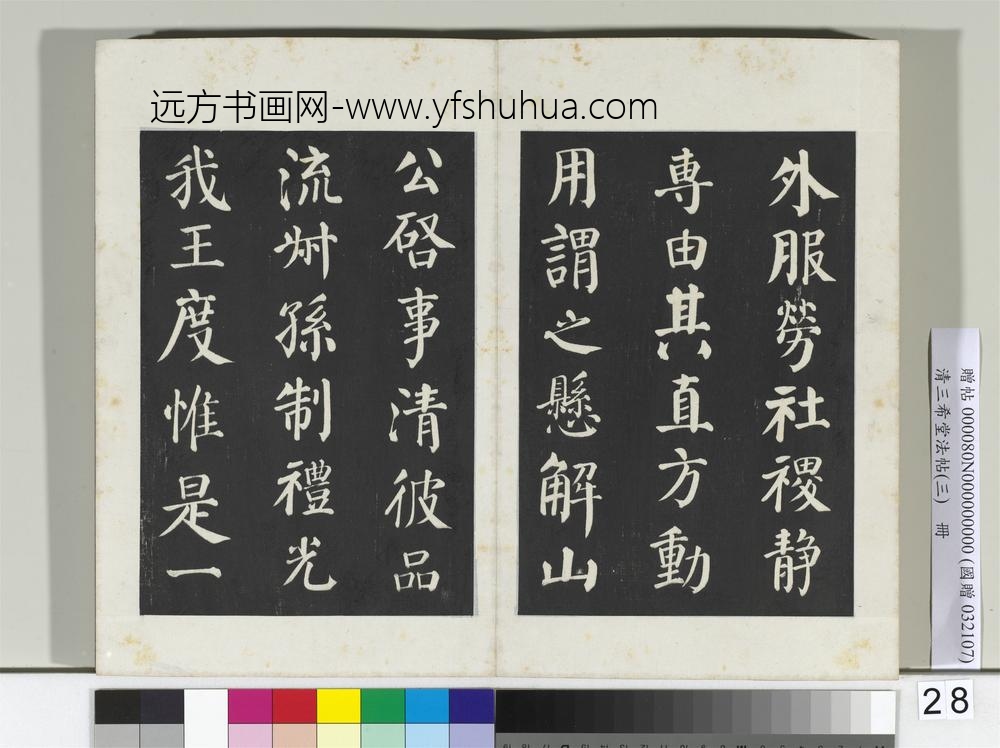 远方书画网-www.yfshuhua.com
外服勞社稷静
専由其直方動
用謂之懸解山
公啓事清彼品
流艸孫制禮光
我王度惟是一
贈帖 000080N000000000 (國贈 032107)
清三希堂法帖(三) 冊
28